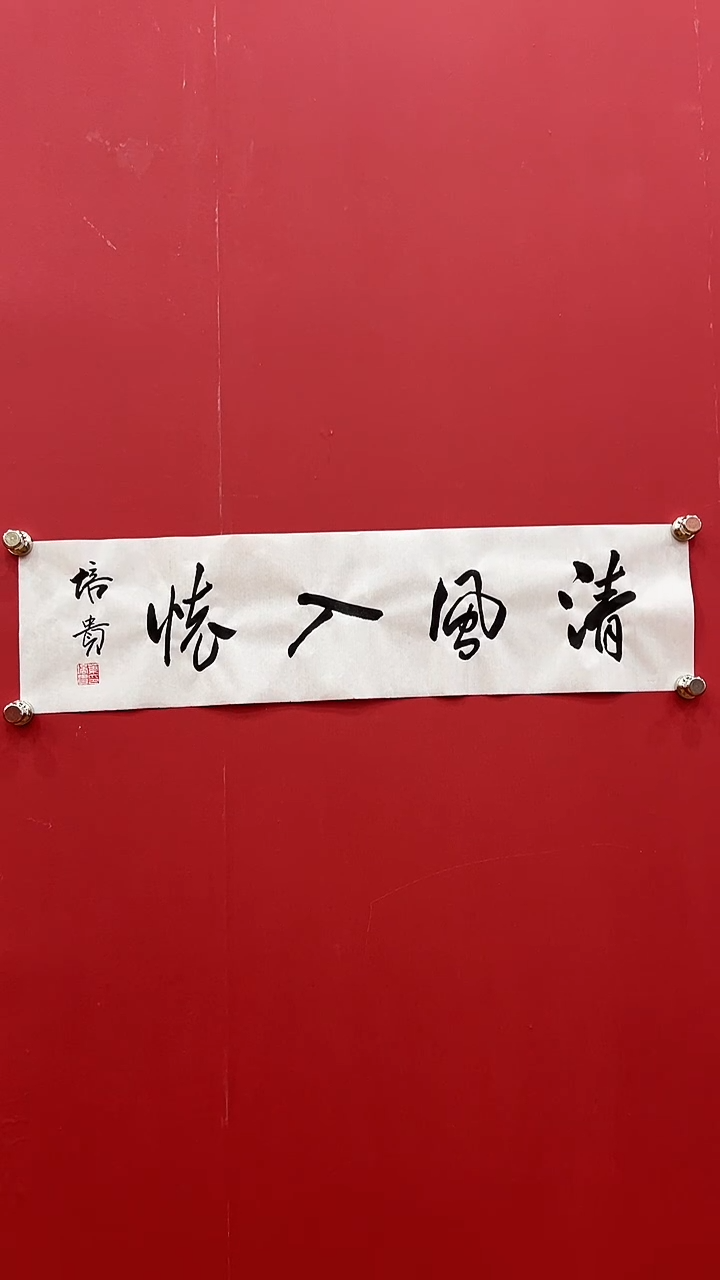 清風入懷
培贵